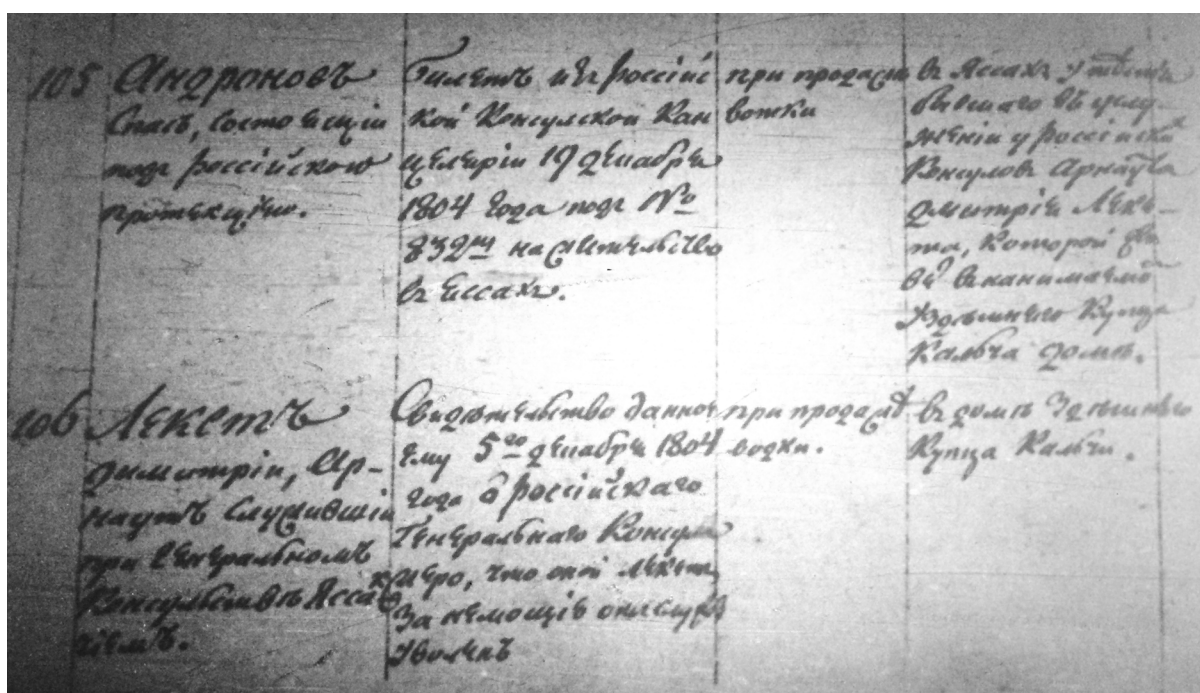 105 Андроновъ
Спасъ, состоящій
подъ россійскою
протекціею.
билетъ изъ россійс
кой Консулской Кан
целяріи 19 декабря
1804 года подъ №
832мъ на жительство
въ Яссахъ.
при продажи
вотки
въ Яссахъ у
бывшаго въ услу
женіи у россійскихъ
Консуловъ Арнаута
дмитрія Леке-
та, которой
въ нанимаемомъ
здешняго Купца
Кальча доме.
106 Лекетъ
димитрій, Ар-
наутъ служившій
при генеральномъ
Консульстве Ясса
Свидетельство данное
ему 5го декабря 1804
года о россійскаго
Генеральнаго Консула
что оной Лекетъ
за немощію она службы
уволенъ
при продаже
водки.
въ доме здешняго
Купца Кальчи.